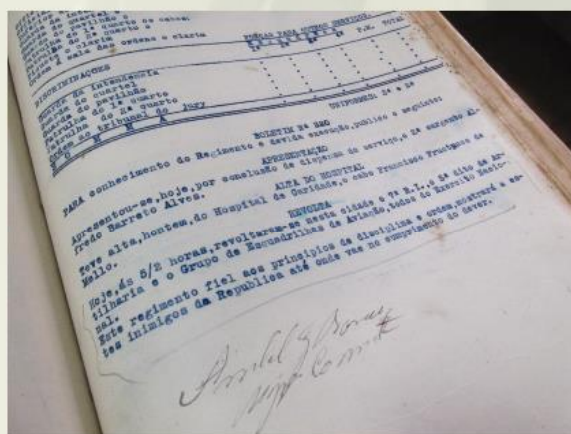 DISCRIMINAÇÕES
FORÇAS PARA OUTROS SERVIÇOS
P.M. TOTAL
Guarda da intendencia
Guarda do quartel
Guarda do pavilhão
Patrulha do 1º quarto
Patrulha do 2º quarto
Ordem ao tribunal do jury
S O M M A
UNIFORMES: 2º e 2º
BOLETIM Nº 220
PARA conhecimento do Regimento e devida execução, publico o seguinte:
APRESENTAÇÃO
Apresentou-se, hoje, por conclusão de dispensa do serviço, o 2º sargento Al-
fredo Barreto Alves.
ALTA DO HOSPITAL
Teve alta, hontem, do Hospital de Caridade, o cabo Francisco Fructuoso de
Mello.
REVOLTA
Hoje, ás 5/2 horas, revoltaram-se nesta cidade o 7º R.I., o 5º dito de Ar-
tilharia e o Grupo de Esquadrilhas de Aviação, todos do Exercito Nacio-
nal.
Este regimento fiel aos principios de disciplina e ordem, mostrará a es-
tes inimigos da Republica até onde vae no cumprimento do dever.